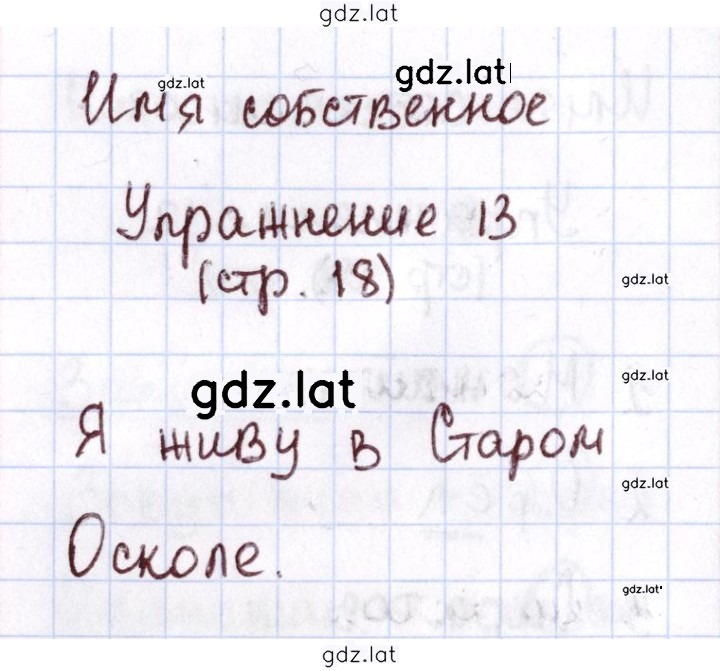 gdz.lat
gdz.lat
gdz.lat
Имя собственное
Упражнение 13
(стр. 18)
gdz.lat
gdz.lat
gdz.lat
Я живу в Старом
gdz.lat
Осколе.
gdz.lat
gdz.lat